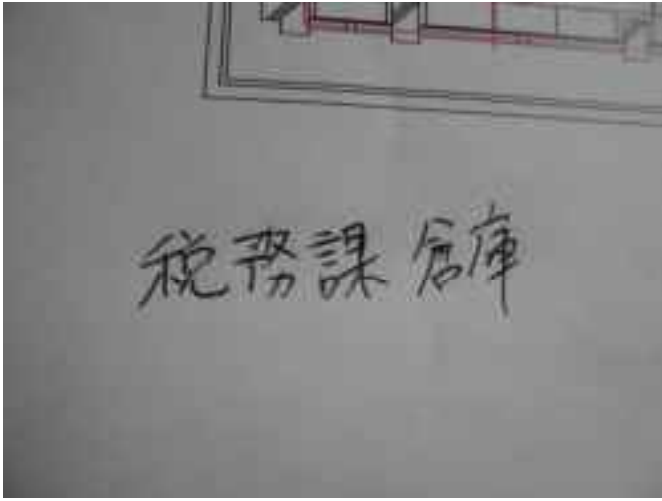 税務課 倉庫